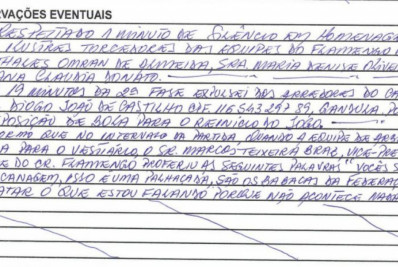 RVAÇÕES EVENTUAIS
RESPEITADO 1 MINUTO DE SILÊNCIO EM HOMENAGE
ILUSTRES TORCEDORES DAS EQUIPES DO FLAMENGO
THALES OMRAN DE ALMEIDA, SRA. MARIA DENISE OLIVE
ANA CLAUDIA DONATO.
19 MINUTOS DA 2ª FASE EXPULSEI DOS ARREDORES DO CA
DIOGO JOÃO DE CASTILHO CPF GANDULA PO
POSIÇÃO DE BOLA PARA O REINÍCIO DO JOGO.
ORMO QUE NO INTERVALO DA PARTIDA, QUANDO A EQUIPE DE ARB
A PARA O VESTIÁRIO, O SR. MARCOS TEIXEIRA BRAZ, VICE-PRE
E DO CR. FLAMENGO PROFERIU AS SEGUINTES PALAVRAS "VOCÊS S
CANAGEM, ISSO É UMA PALHAÇADA, SÃO OS BABACAS DA FEDERAÇ
ATAR O QUE ESTOU FALANDO PORQUE NÃO ACONTECE NADA